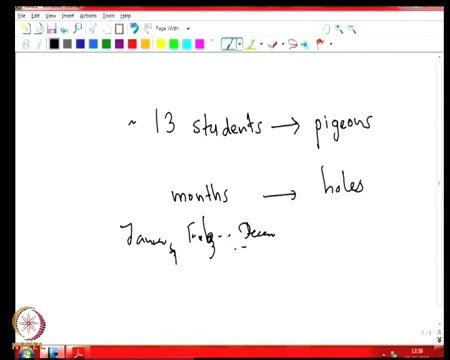 File Edit View Insert Actions Tools Help
Page Width
~ 13 students → pigeons
months → holes
1/1
12:38